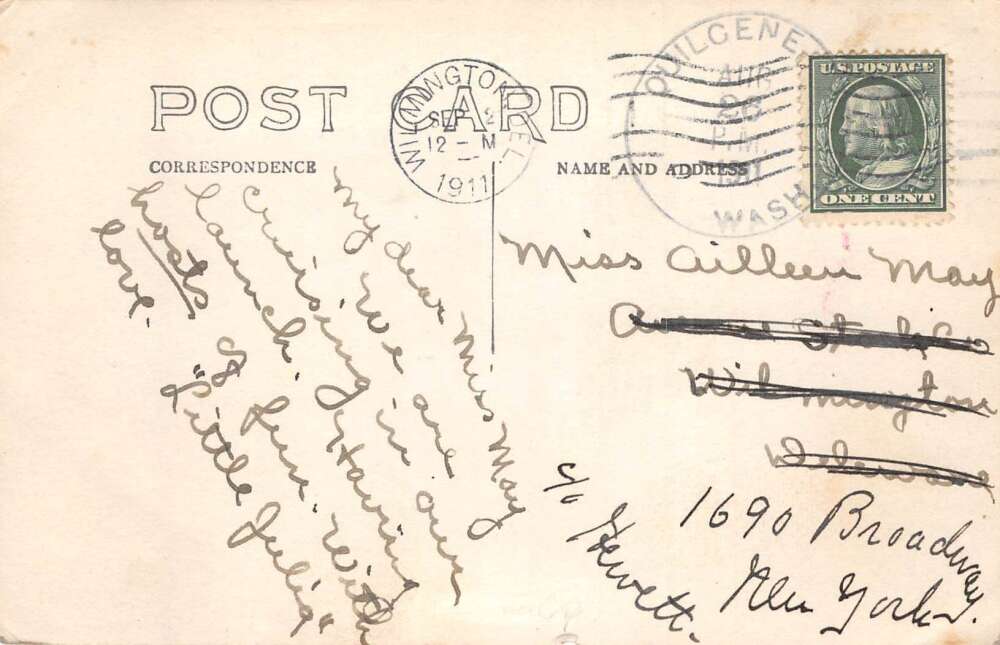 POST CARD
CORRESPONDENCE
NAME AND ADDRESS
WILMINGTON DEL
SEP 2
12 - M
1911
QUILCENE
AUG
26
P.M.
1911
WASH
U.S. POSTAGE
ONE CENT
My dear Miss May
We are
cruising in our
launch. Having
hosts of fun. With
love.
"Little Julia"
Miss Ailleen May
Stock Co
Wilmington
Delaware
c/o Hewett.
1690 Broadway
New York.